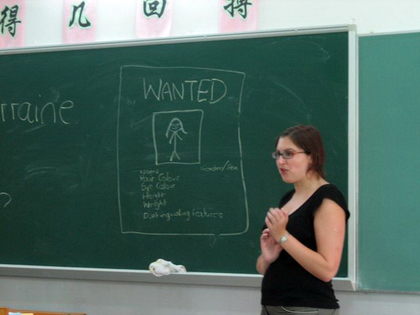 得 几 回 每
rraine
WANTED
Name
Hair Colour
Eye Colour
Height
Weight
Distinguishing features